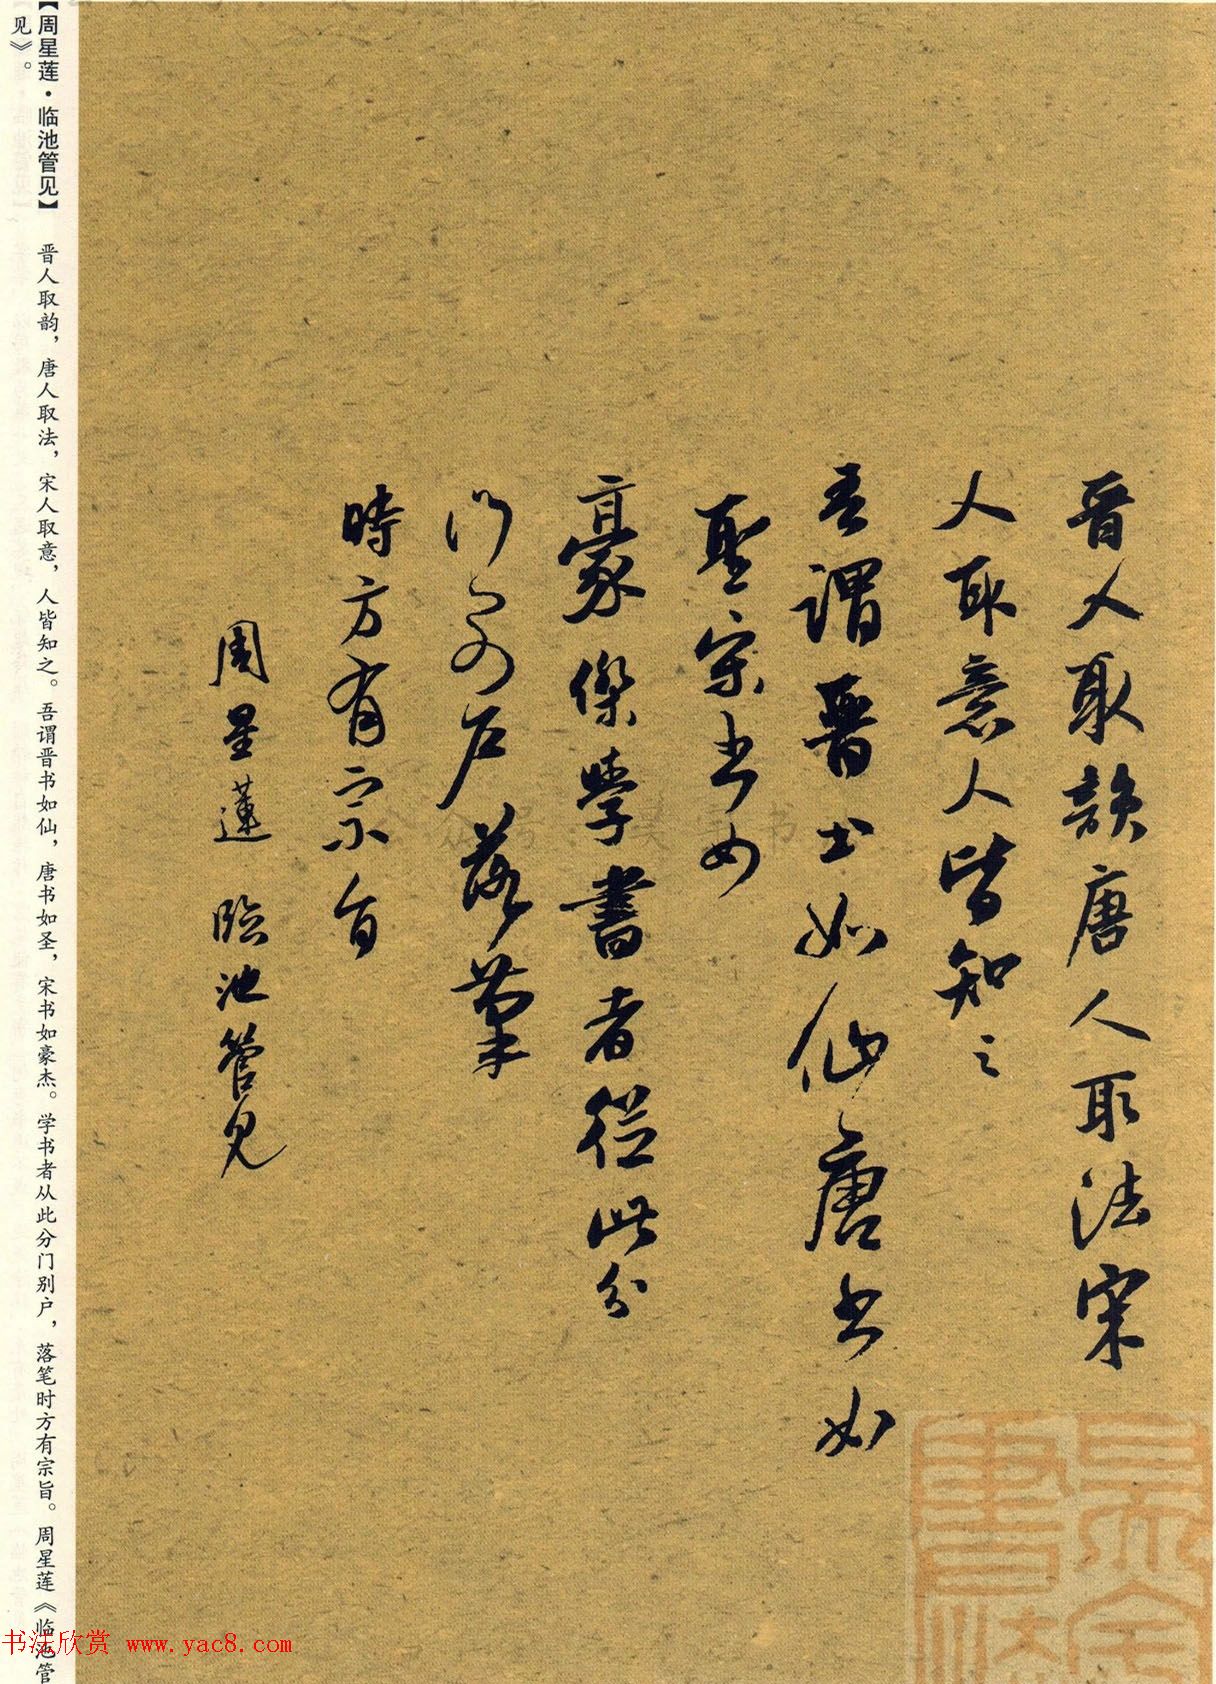 晋人取韻唐人取法宋
人取意人皆知之
吾謂晋书如仙唐书如
聖宋书如
豪傑學書者從此分
门别户落筆
時方有宗旨
周星蓮 臨池管見
【周星莲·临池管见】 晋人取韵，唐人取法，宋人取意，人皆知之。吾谓晋书如仙，唐书如圣，宋书如豪杰。学书者从此分门别户，落笔时方有宗旨。周星莲《临池管
见》。
书法欣赏 www.yac8.com